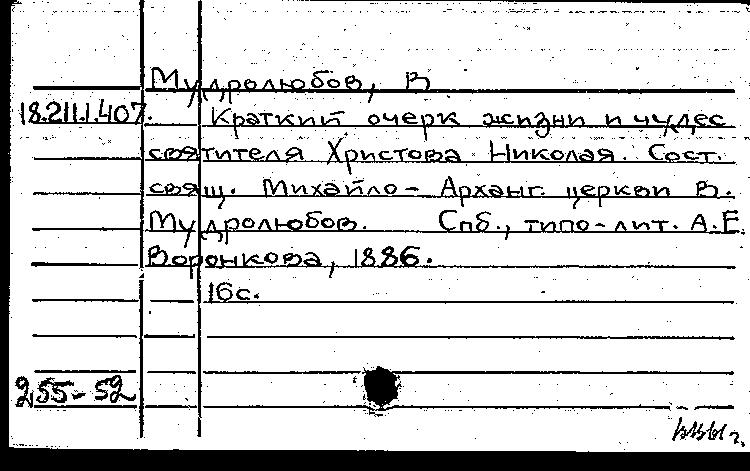 Мудролюбов, В
18.211.1.407. Краткий очерк жизни и чудес
святителя Христова Николая. Сост.
свящ. Михайло-Арханг. церкви В.
Мудролюбов. Спб., типо-лит. А.Е.
Воронкова, 1886.
16с.
255-52